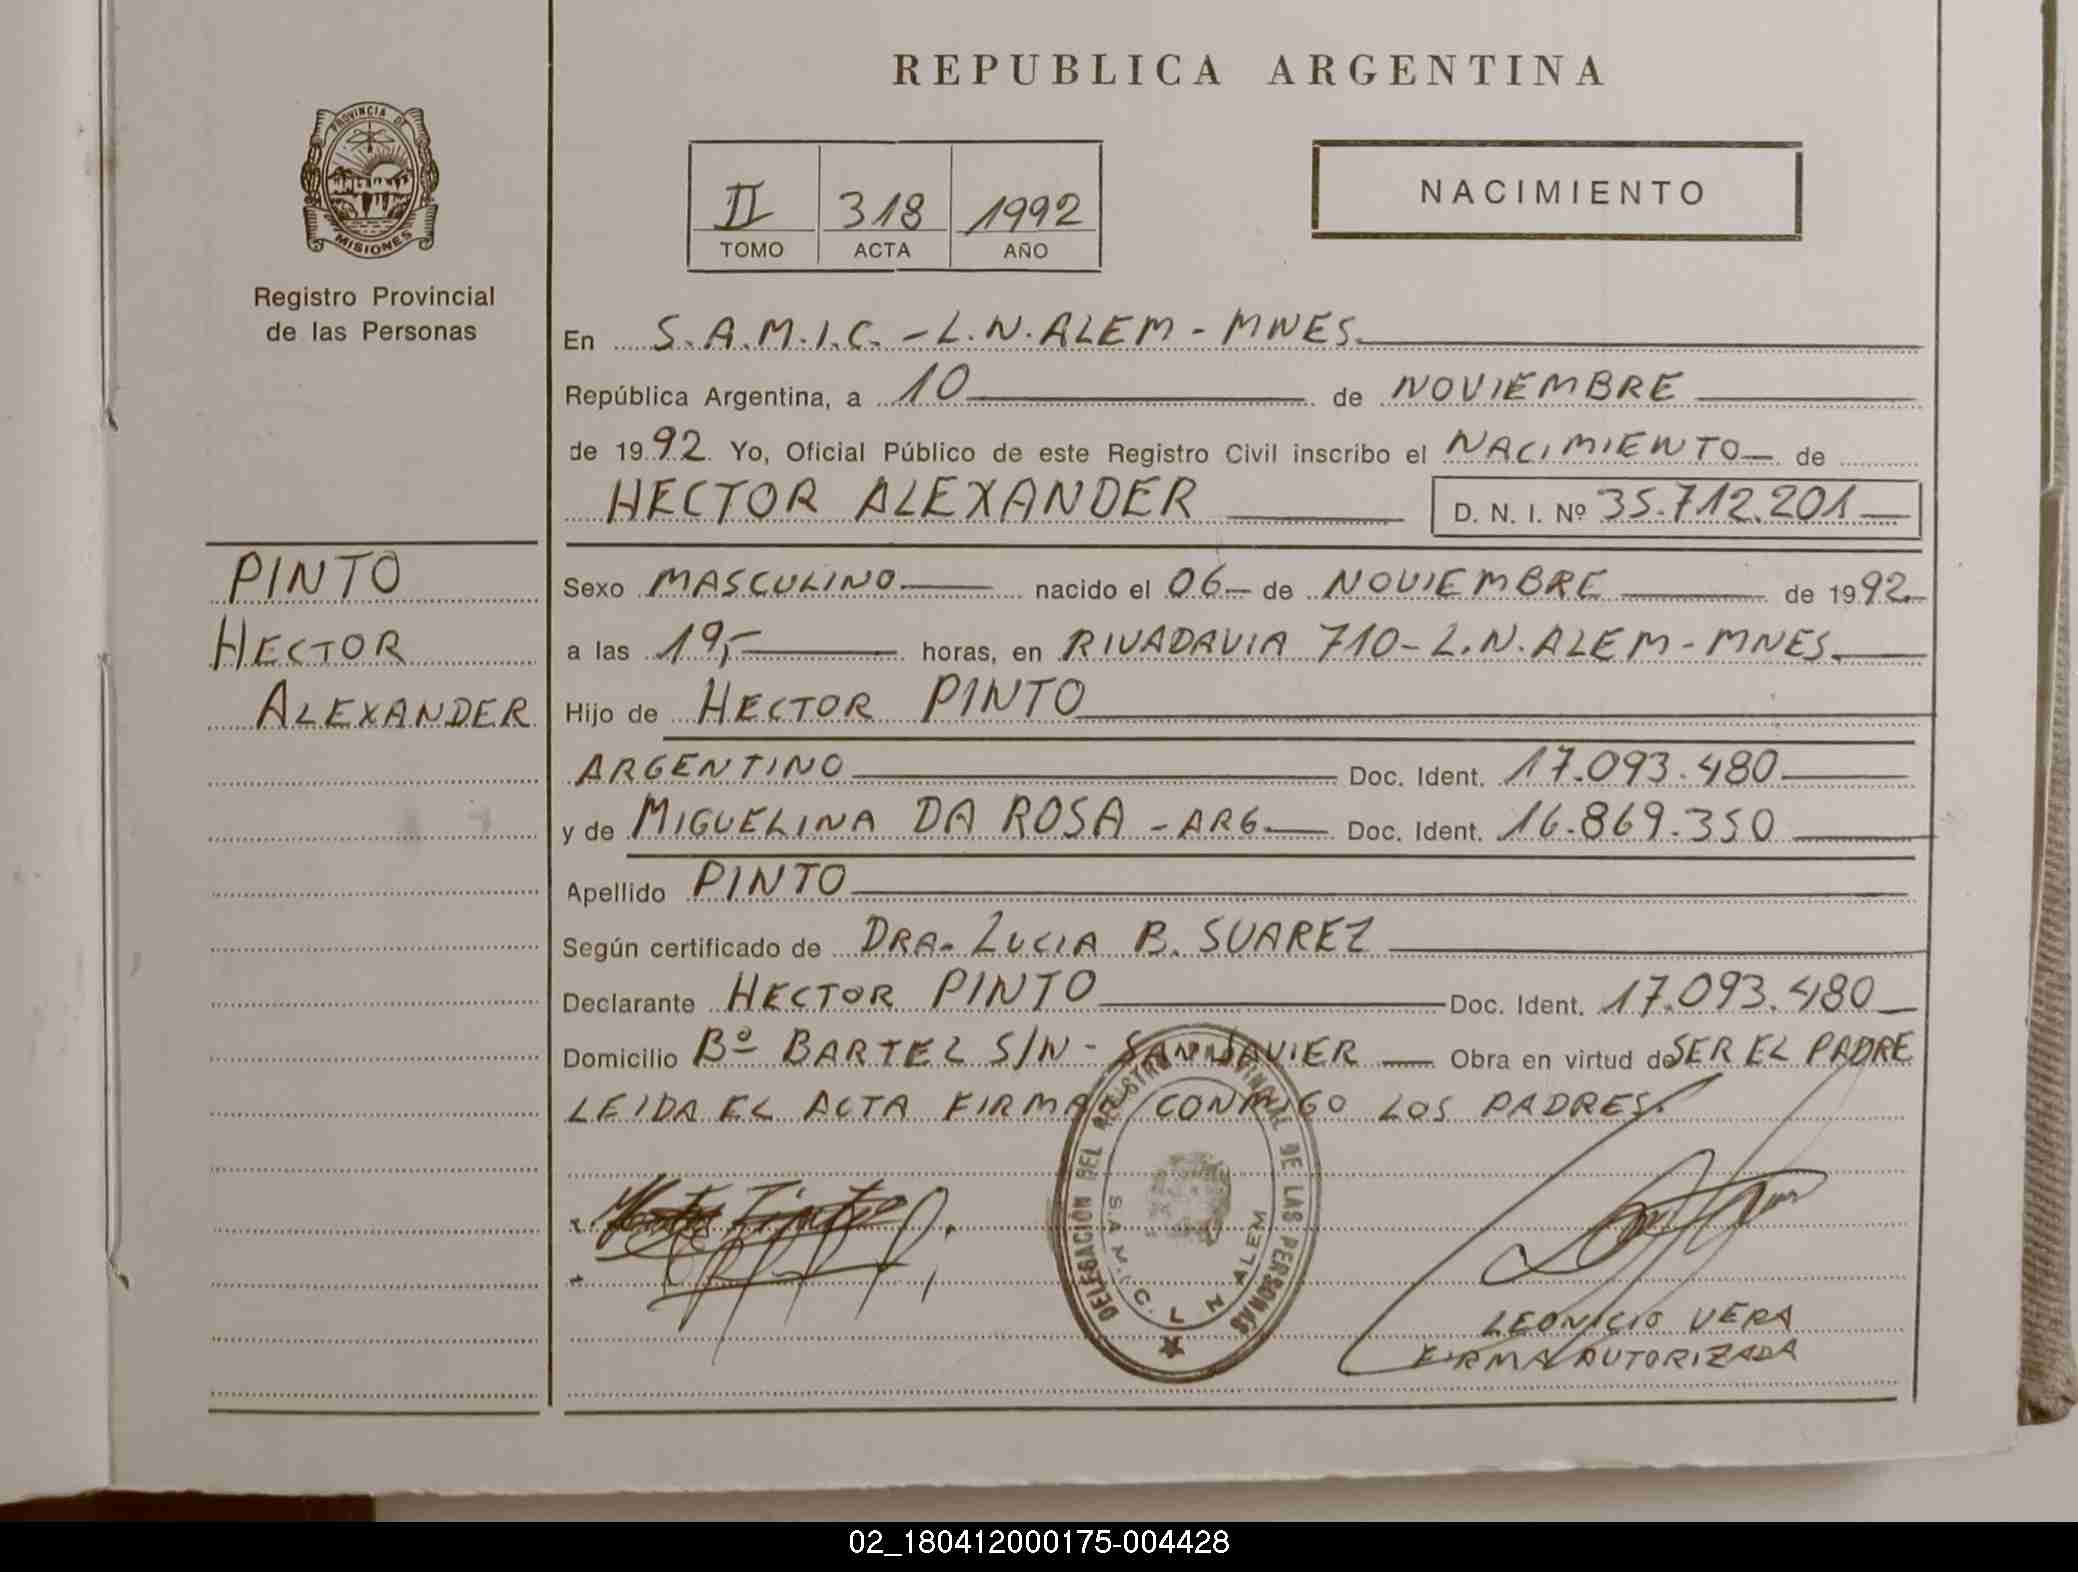 REPUBLICA ARGENTINA
PROVINCIA DE
MISIONES
Registro Provincial
de las Personas
II 318 1992
TOMO ACTA AÑO
NACIMIENTO
En S.A.M.I.C. - L.N. ALEM - MNES.
República Argentina, a 10 de NOVIEMBRE
de 1992. Yo, Oficial Público de este Registro Civil inscribo el NACIMIENTO de
HECTOR ALEXANDER D. N. I. Nº 35.712.201
PINTO
HECTOR
ALEXANDER
Sexo MASCULINO nacido el 06 de NOVIEMBRE de 1992
a las 19,- horas, en RIVADAVIA 710 - L.N. ALEM - MNES.
Hijo de HECTOR PINTO
ARGENTINO Doc. Ident. 17.093.480
y de MIGUELINA DA ROSA - ARG. Doc. Ident. 16.869.350
Apellido PINTO
Según certificado de DRA. LUCIA B. SUAREZ
Declarante HECTOR PINTO Doc. Ident. 17.093.480
Domicilio Bº BARTEL S/N - SAN JAVIER Obra en virtud de SER EL PADRE
LEIDA EL ACTA FIRMAN CONMIGO LOS PADRES.
DELEGACIÓN DEL REGISTRO PROVINCIAL DE LAS PERSONAS
S.A.M.I.C. L N ALEM
LEONICIO VERA
FIRMA AUTORIZADA
02_180412000175-004428